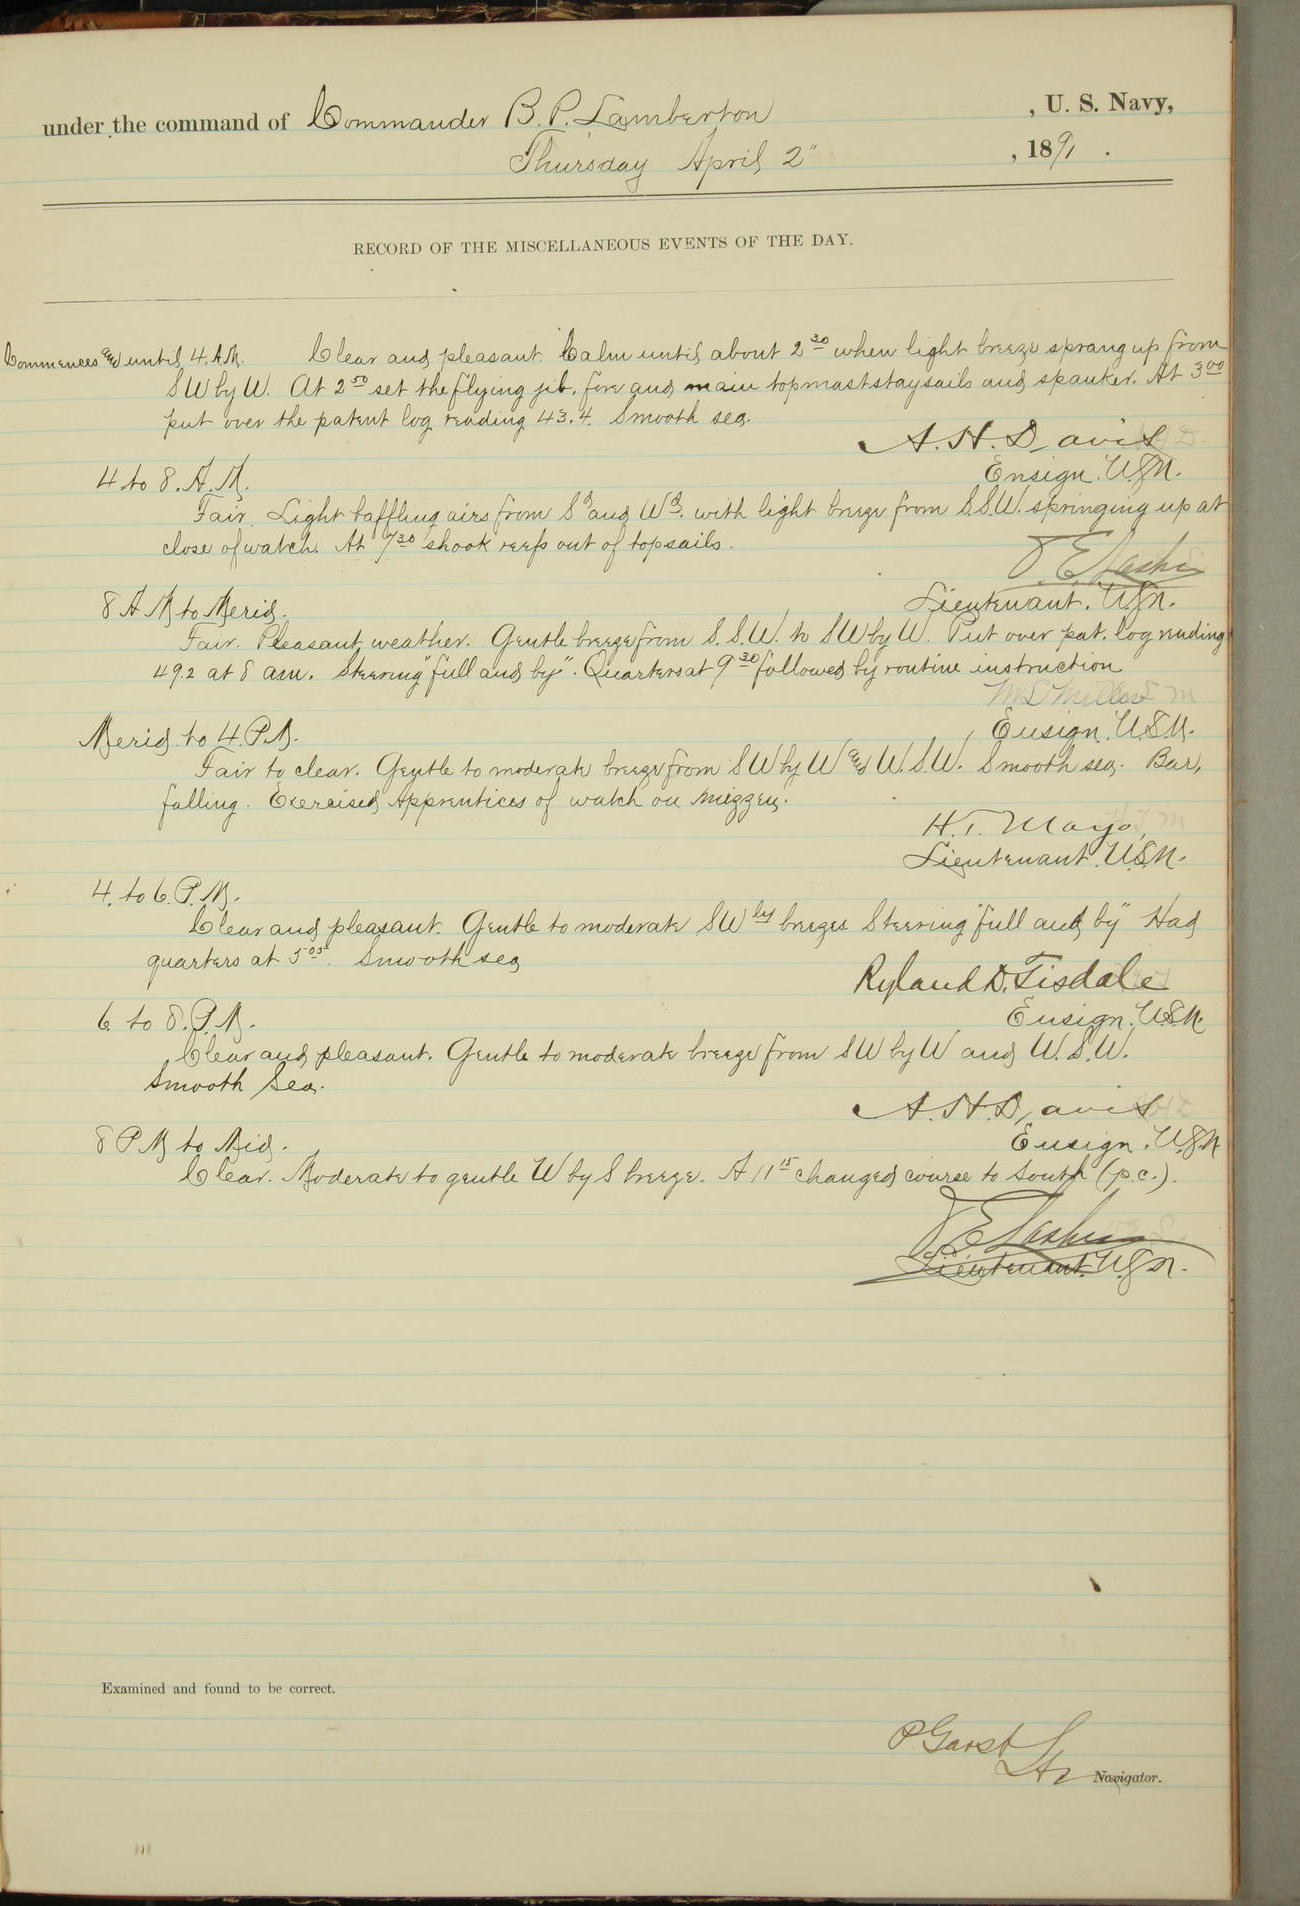 under the command of Commander B. P. Lamberton , U. S. Navy,
Thursday April 2" , 1891 .
RECORD OF THE MISCELLANEOUS EVENTS OF THE DAY.
Commences and until 4. A.M. Clear and pleasant. Calm until about 2 30 when light breeze sprang up from
SW by W. At 2 50 set the flying jib, fore and main topmast staysails and spanker. At 3 00
put over the patent log reading 43.4. Smooth sea.
A. H. Davis
Ensign. U.S.N.
4 to 8. A. M.
Fair. Light baffling airs from Sd and Wd. with light breeze from S.S.W. springing up at
close of watch. At 7 30 shook reefs out of topsails.
Lieutenant. U.S.N.
8 A M to Merid.
Fair. Pleasant weather. Gentle breeze from S. S. W. to SW by W. Put over pat. log reading
49.2 at 8 am. Steering "full and by". Quarters at 9 30 followed by routine instruction
Ensign. U.S.N.
Merid. to 4. P.M.
Fair to clear. Gentle to moderate breeze from SW by W and W.S.W. Smooth sea. Bar,
falling. Exercised Apprentices of watch on mizzen.
H. T. Mayo,
Lieutenant U.S.N.
4. to 6. P. M.
Clear and pleasant. Gentle to moderate SW ly breezes. Steering "full and by" Had
quarters at 5 05. Smooth sea
Ryland D. Tisdale
Ensign. U.S.N.
6. to 8. P. M.
Clear and pleasant. Gentle to moderate breeze from SW by W and W. S. W.
Smooth Sea.
A. H. Davis
Ensign. U.S.N
8 P M to Mid.
Clear. Moderate to gentle W by S breeze. A 11 15 changed course to South (p.c.).
Lieutenant. U.S.N.
Examined and found to be correct.
P Garst
Navigator.